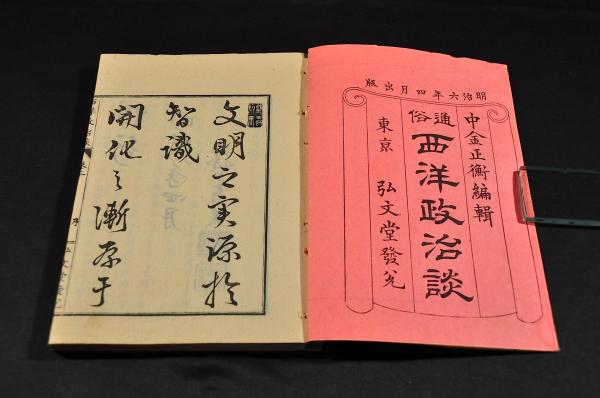 明治六年四月出版
中金正衡編輯
通俗 西洋政治談
東京 弘文堂發兌
文明之実源於
智識
開化之漸原于
序